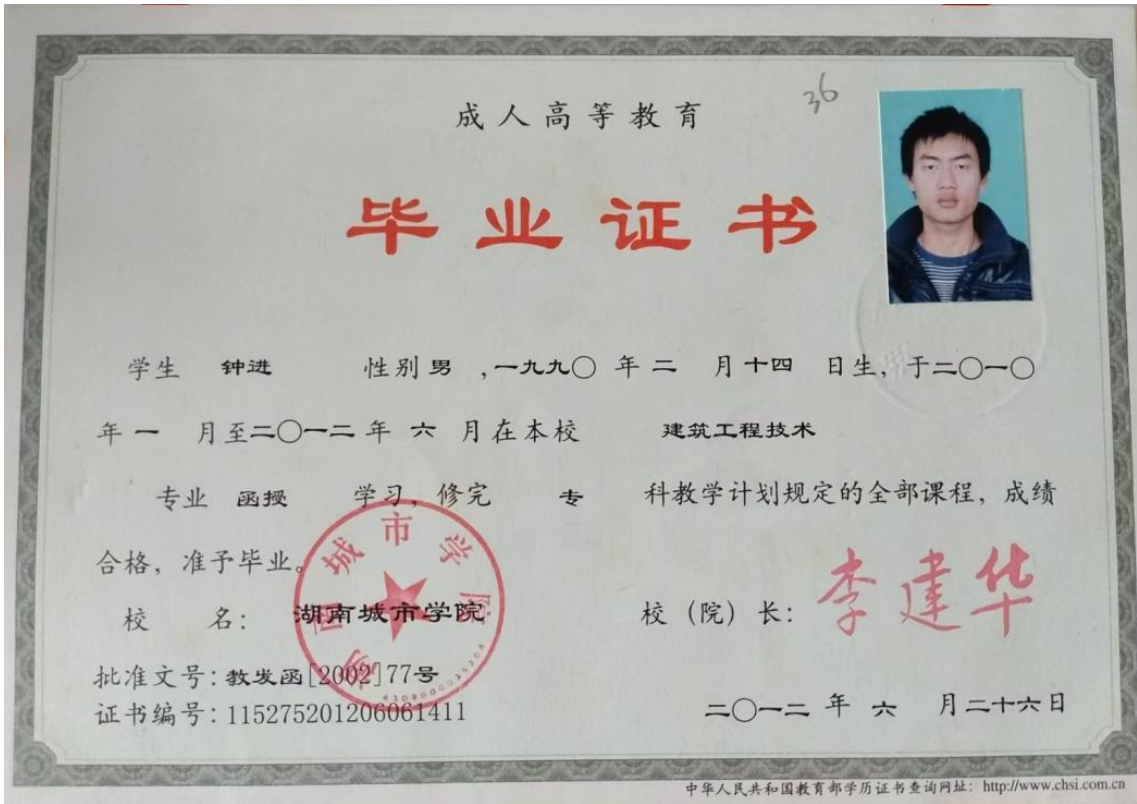 36
成人高等教育
毕业证书
学生 钟进 性别 男 ,一九九〇 年 二 月 十四 日生, 于二〇一〇
年 一 月至二〇一二 年 六 月在本校 建筑工程技术
专业 函授 学习, 修完 专 科教学计划规定的全部课程, 成绩
合格, 准予毕业。
湖南城市学院
校 名: 湖南城市学院 校 (院) 长: 李建华
批准文号: 教发函[2002]77号
证书编号: 115275201206061411 二〇一二 年 六 月二十六日
中华人民共和国教育部学历证书查询网址: http://www.chsi.com.cn